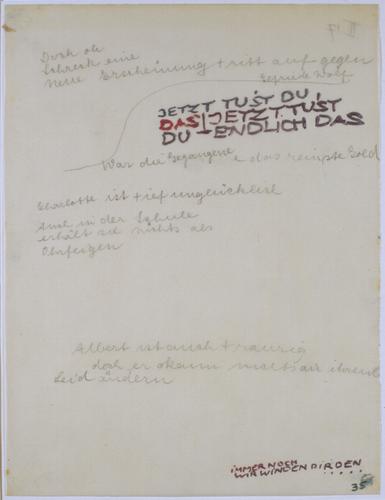 Doch oh
Schreck eine
neue Erscheinung tritt auf gegen
JETZT TUST DU
DAS JETZT TUST
DU ENDLICH DAS
War die Gegangene das reinste Gold
Charlotte ist tief unglücklich
Auch in der Schule
erhält sie nichts als
Ohrfeigen
Albert ist auch traurig
doch er kann nichts an ihrem
Leid ändern
IMMER NOCH
WIR WINDEN DIR DEN
35